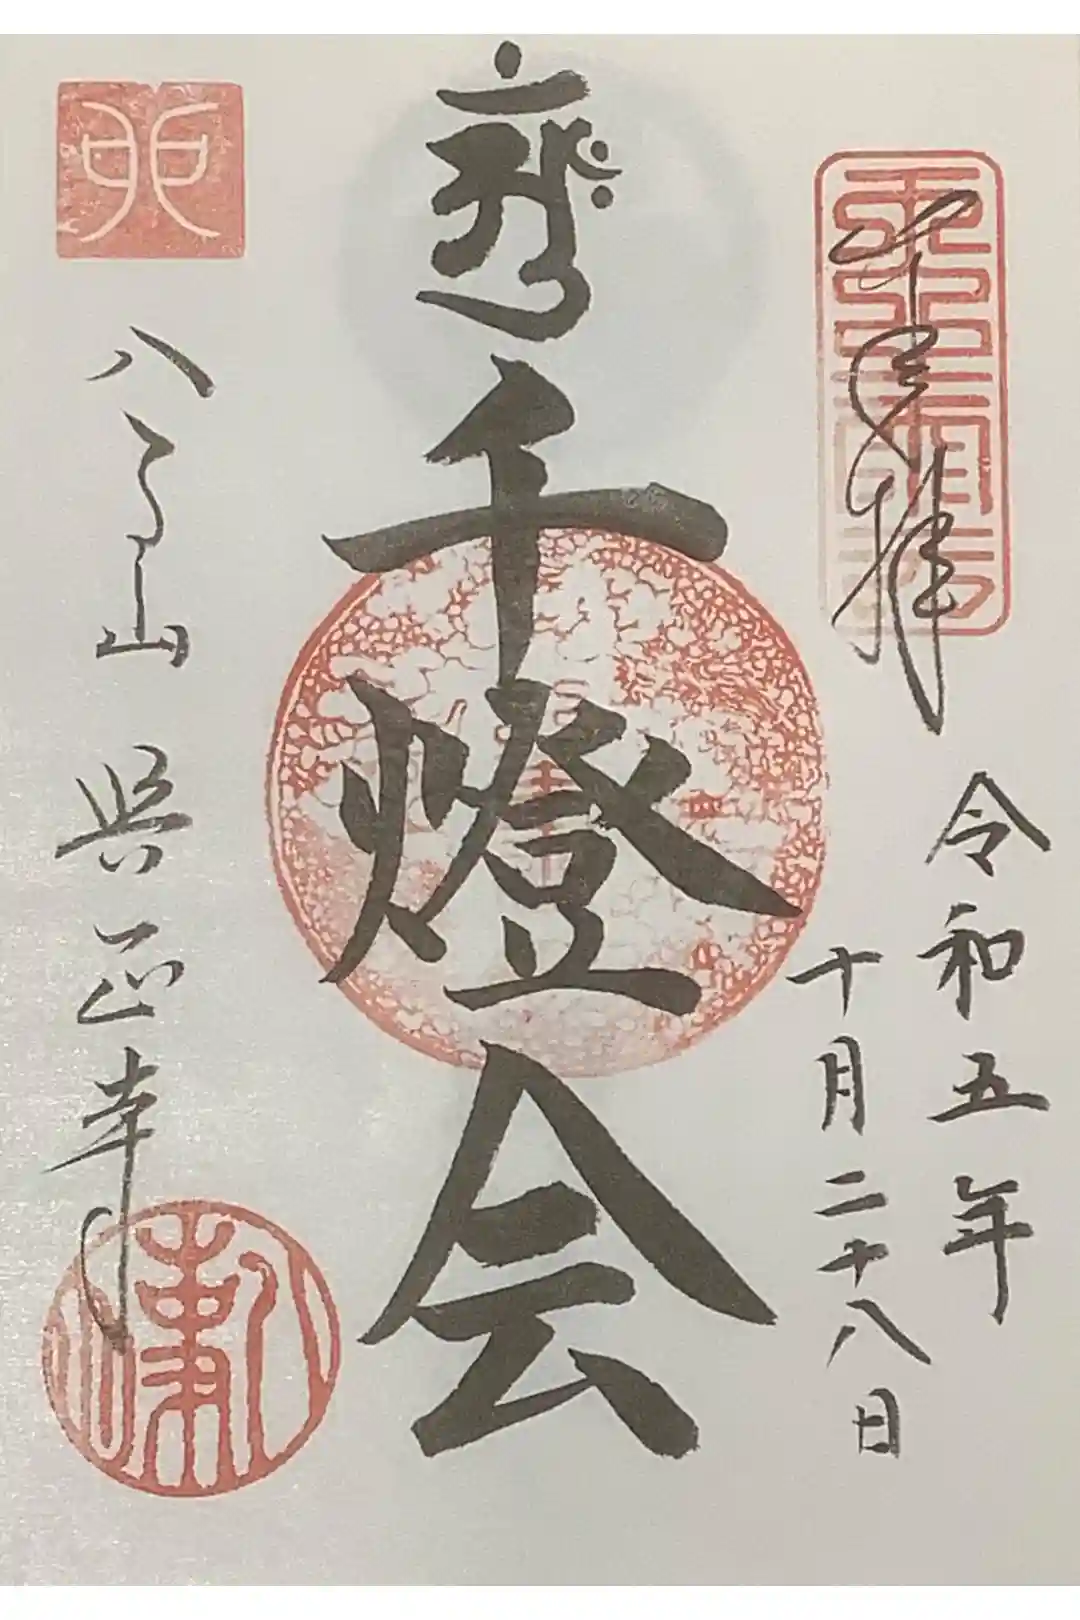 奉拝
令和五年
十月二十八日
千燈会
八事山
興正寺